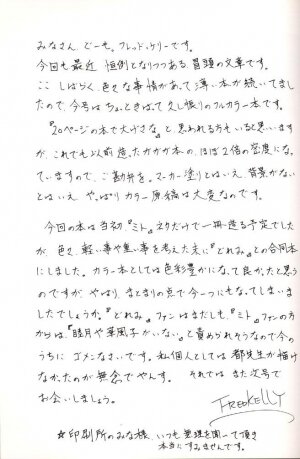 みなさん どーも。フレッド・ケリーです。
今回も最近 恒例となりつつある、冒頭の文章です。
ここしばらく、色々な事情があって薄い本が続いてまし
たので、今号はちょっときばって久し振りのフルカラー本です。
『20ページの本で大げさな。』と 思われる方もいると思います
が、これでも以前 造ったカカカ本の、ほぼ2倍の密度になっ
ていますので、ご勘弁を。マーカー塗りとはいえ、背景がない
とはいえ やっぱりカラー原稿は大変なのです。
今回の本は当初、『ミト』ネタだけで一冊造る予定でした
が 色々、軽い事や重い事を考えた末に『どれみ』との合同本
にしました。カラー本としては色彩豊かになって良かったと思う
のですが やはり、まとまりの点で今一つにもなってしまいま
したでしょうか。『どれみ』ファンはまだしも、『ミト』ファンの方
からは、『睦月や華風子がいない。』と責められそうなので今の
うちに ゴメンなさいです。私個人としては 都先生が描け
なかったのが無念でやんす。 それでは また次号で
お会いしましょう。
FREDKELLY
☆印刷所のみな様 いつも無理を聞いて頂き
本当にすみませんです。